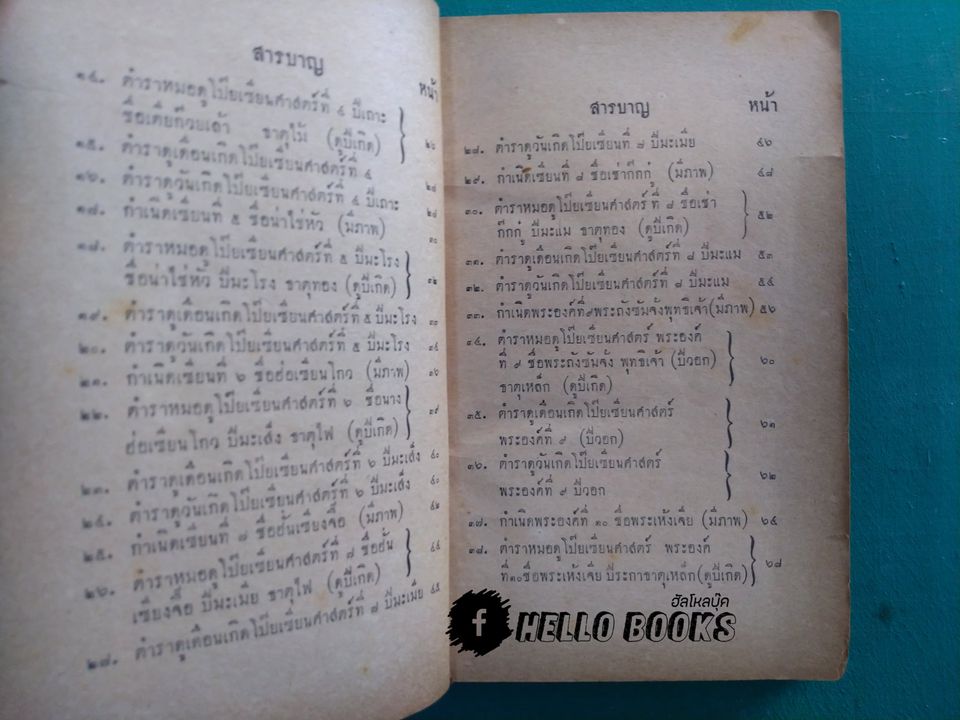 สารบาญ
หน้า
๑๔. ตำราหมอดูโป๊ยเซียนศาสตร์ที่ ๔ ปีเถาะ
ชื่อเตียก๊วยเล้า ธาตุไม้ (ดูปีเกิด) ๒๖
๑๕. ตำราดูเดือนเกิดโป๊ยเซียนศาสตร์ที่ ๔
๑๖. ตำราดูวันเกิดโป๊ยเซียนศาสตร์ที่ ๔ ปีเถาะ ๒๘
๑๗. กำเนิดเซียนที่ ๕ ชื่อน่าไช่หัว (มีภาพ) ๓๐
๑๘. ตำราหมอดูโป๊ยเซียนศาสตร์ที่ ๕ ปีมะโรง
ชื่อน่าไช่หัว ปีมะโรง ธาตุทอง (ดูปีเกิด) ๓๒
๑๙. ตำราดูเดือนเกิดโป๊ยเซียนศาสตร์ที่ ๕ ปีมะโรง ๓๓
๒๐. ตำราดูวันเกิดโป๊ยเซียนศาสตร์ที่ ๕ ปีมะโรง ๓๔
๒๑. กำเนิดเซียนที่ ๖ ชื่อฮ่อเซียนโกว (มีภาพ) ๓๖
๒๒. ตำราหมอดูโป๊ยเซียนศาสตร์ที่ ๖ ชื่อนาง
ฮ่อเซียนโกว ปีมะเส็ง ธาตุไฟ (ดูปีเกิด) ๓๙
๒๓. ตำราดูเดือนเกิดโป๊ยเซียนศาสตร์ที่ ๖ ปีมะเส็ง ๔๐
๒๔. ตำราดูวันเกิดโป๊ยเซียนศาสตร์ที่ ๖ ปีมะเส็ง ๔๐
๒๕. กำเนิดเซียนที่ ๗ ชื่อฮันเซียงจื๊อ (มีภาพ) ๔๒
๒๖. ตำราหมอดูโป๊ยเซียนศาสตร์ที่ ๗ ชื่อฮั่น
เซียงจื๊อ ปีมะเมีย ธาตุไฟ (ดูปีเกิด) ๔๔
๒๗. ตำราดูเดือนเกิดโป๊ยเซียนศาสตร์ที่ ๗ ปีมะเมีย ๔๕
สารบาญ หน้า
๒๘. ตำราดูวันเกิดโป๊ยเซียนที่ ๗ ปีมะเมีย ๔๖
๒๙. กำเนิดเซียนที่ ๘ ชื่อเช่าก๊กกู๋ (มีภาพ) ๔๘
๓๐. ตำราหมอดูโป๊ยเซียนศาสตร์ที่ ๘ ชื่อเช่า
ก๊กกู๋ ปีมะแม ธาตุทอง (ดูปีเกิด) ๕๒
๓๑. ตำราดูเดือนเกิดโป๊ยเซียนศาสตร์ที่ ๘ ปีมะแม ๕๓
๓๒. ตำราดูวันเกิดโป๊ยเซียนศาสตร์ที่ ๘ ปีมะแม ๕๔
๓๓. กำเนิดพระองค์ที่๙พระถังซัมจั๋งพุทธิเจ้า(มีภาพ) ๕๖
๓๔. ตำราหมอดูโป๊ยเซียนศาสตร์ พระองค์
ที่ ๙ ชื่อพระถังซัมจั๋ง พุทธิเจ้า (ปีวอก) ๖๐
ธาตุเหล็ก (ดูปีเกิด)
๓๕. ตำราดูเดือนเกิดโป๊ยเซียนศาสตร์
พระองค์ที่ ๙ (ปีวอก) ๖๑
๓๖. ตำราดูวันเกิดโป๊ยเซียนศาสตร์
พระองค์ที่ ๙ ปีวอก ๖๒
๓๗. กำเนิดพระองค์ที่ ๑๐ ชื่อพระเห้งเจีย (มีภาพ) ๖๔
๓๘. ตำราหมอดูโป๊ยเซียนศาสตร์ พระองค์
ที่๑๐ชื่อพระเห้งเจีย ปีระกาธาตุเหล็ก(ดูปีเกิด) ๖๘
ฮัลโหลบุ๊ค
f HELLO BOOKS